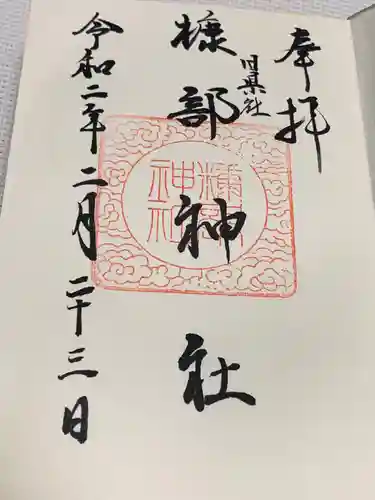 奉拝
旧県社
糠部神社
糠部神社
令和二年二月二十三日